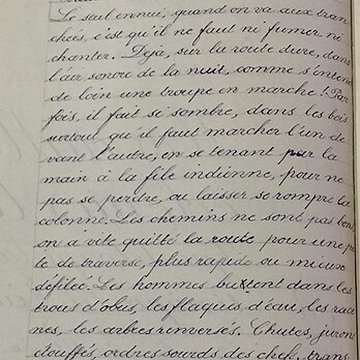 Le seul ennui, quand on va aux tran
chées, c'est qu'il ne faut ni fumer ni
chanter. Déjà, sur la route dure, dans
l'air sonore de la nuit, comme s'entend
de loin une troupe en marche! Par
fois, il fait si sombre, dans les bois
surtout qu'il faut marcher l'un de
vant l'autre, en se tenant par la
main à la file indienne, pour ne
pas se perdre, ou laisser se rompre la
colonne. Les chemins ne sont pas bons
on a vite quitté la route pour une pis
te de traverse, plus rapide ou mieux
défilée. Les hommes buttent dans les
trous d'obus, les flaques d'eau, les raci
nes, les arbres renversés. Chutes, jurons
étouffés, ordres sourds des chefs, trans